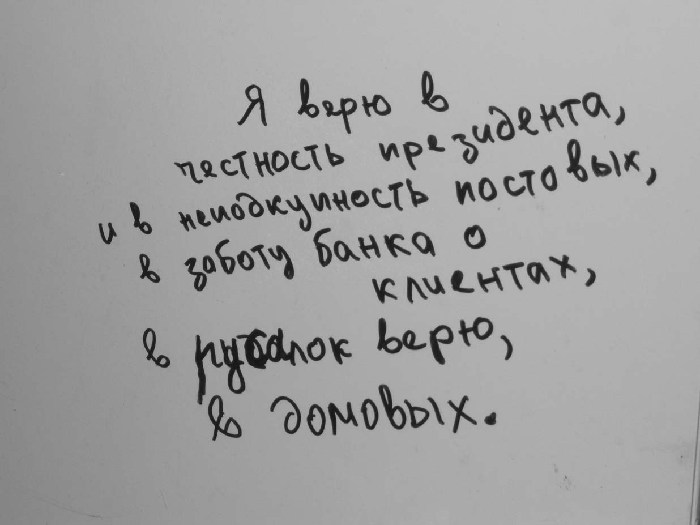 Я верю в
честность президента,
и в неподкупность постовых,
в заботу банка о
клиентах,
в русалок верю,
в домовых.